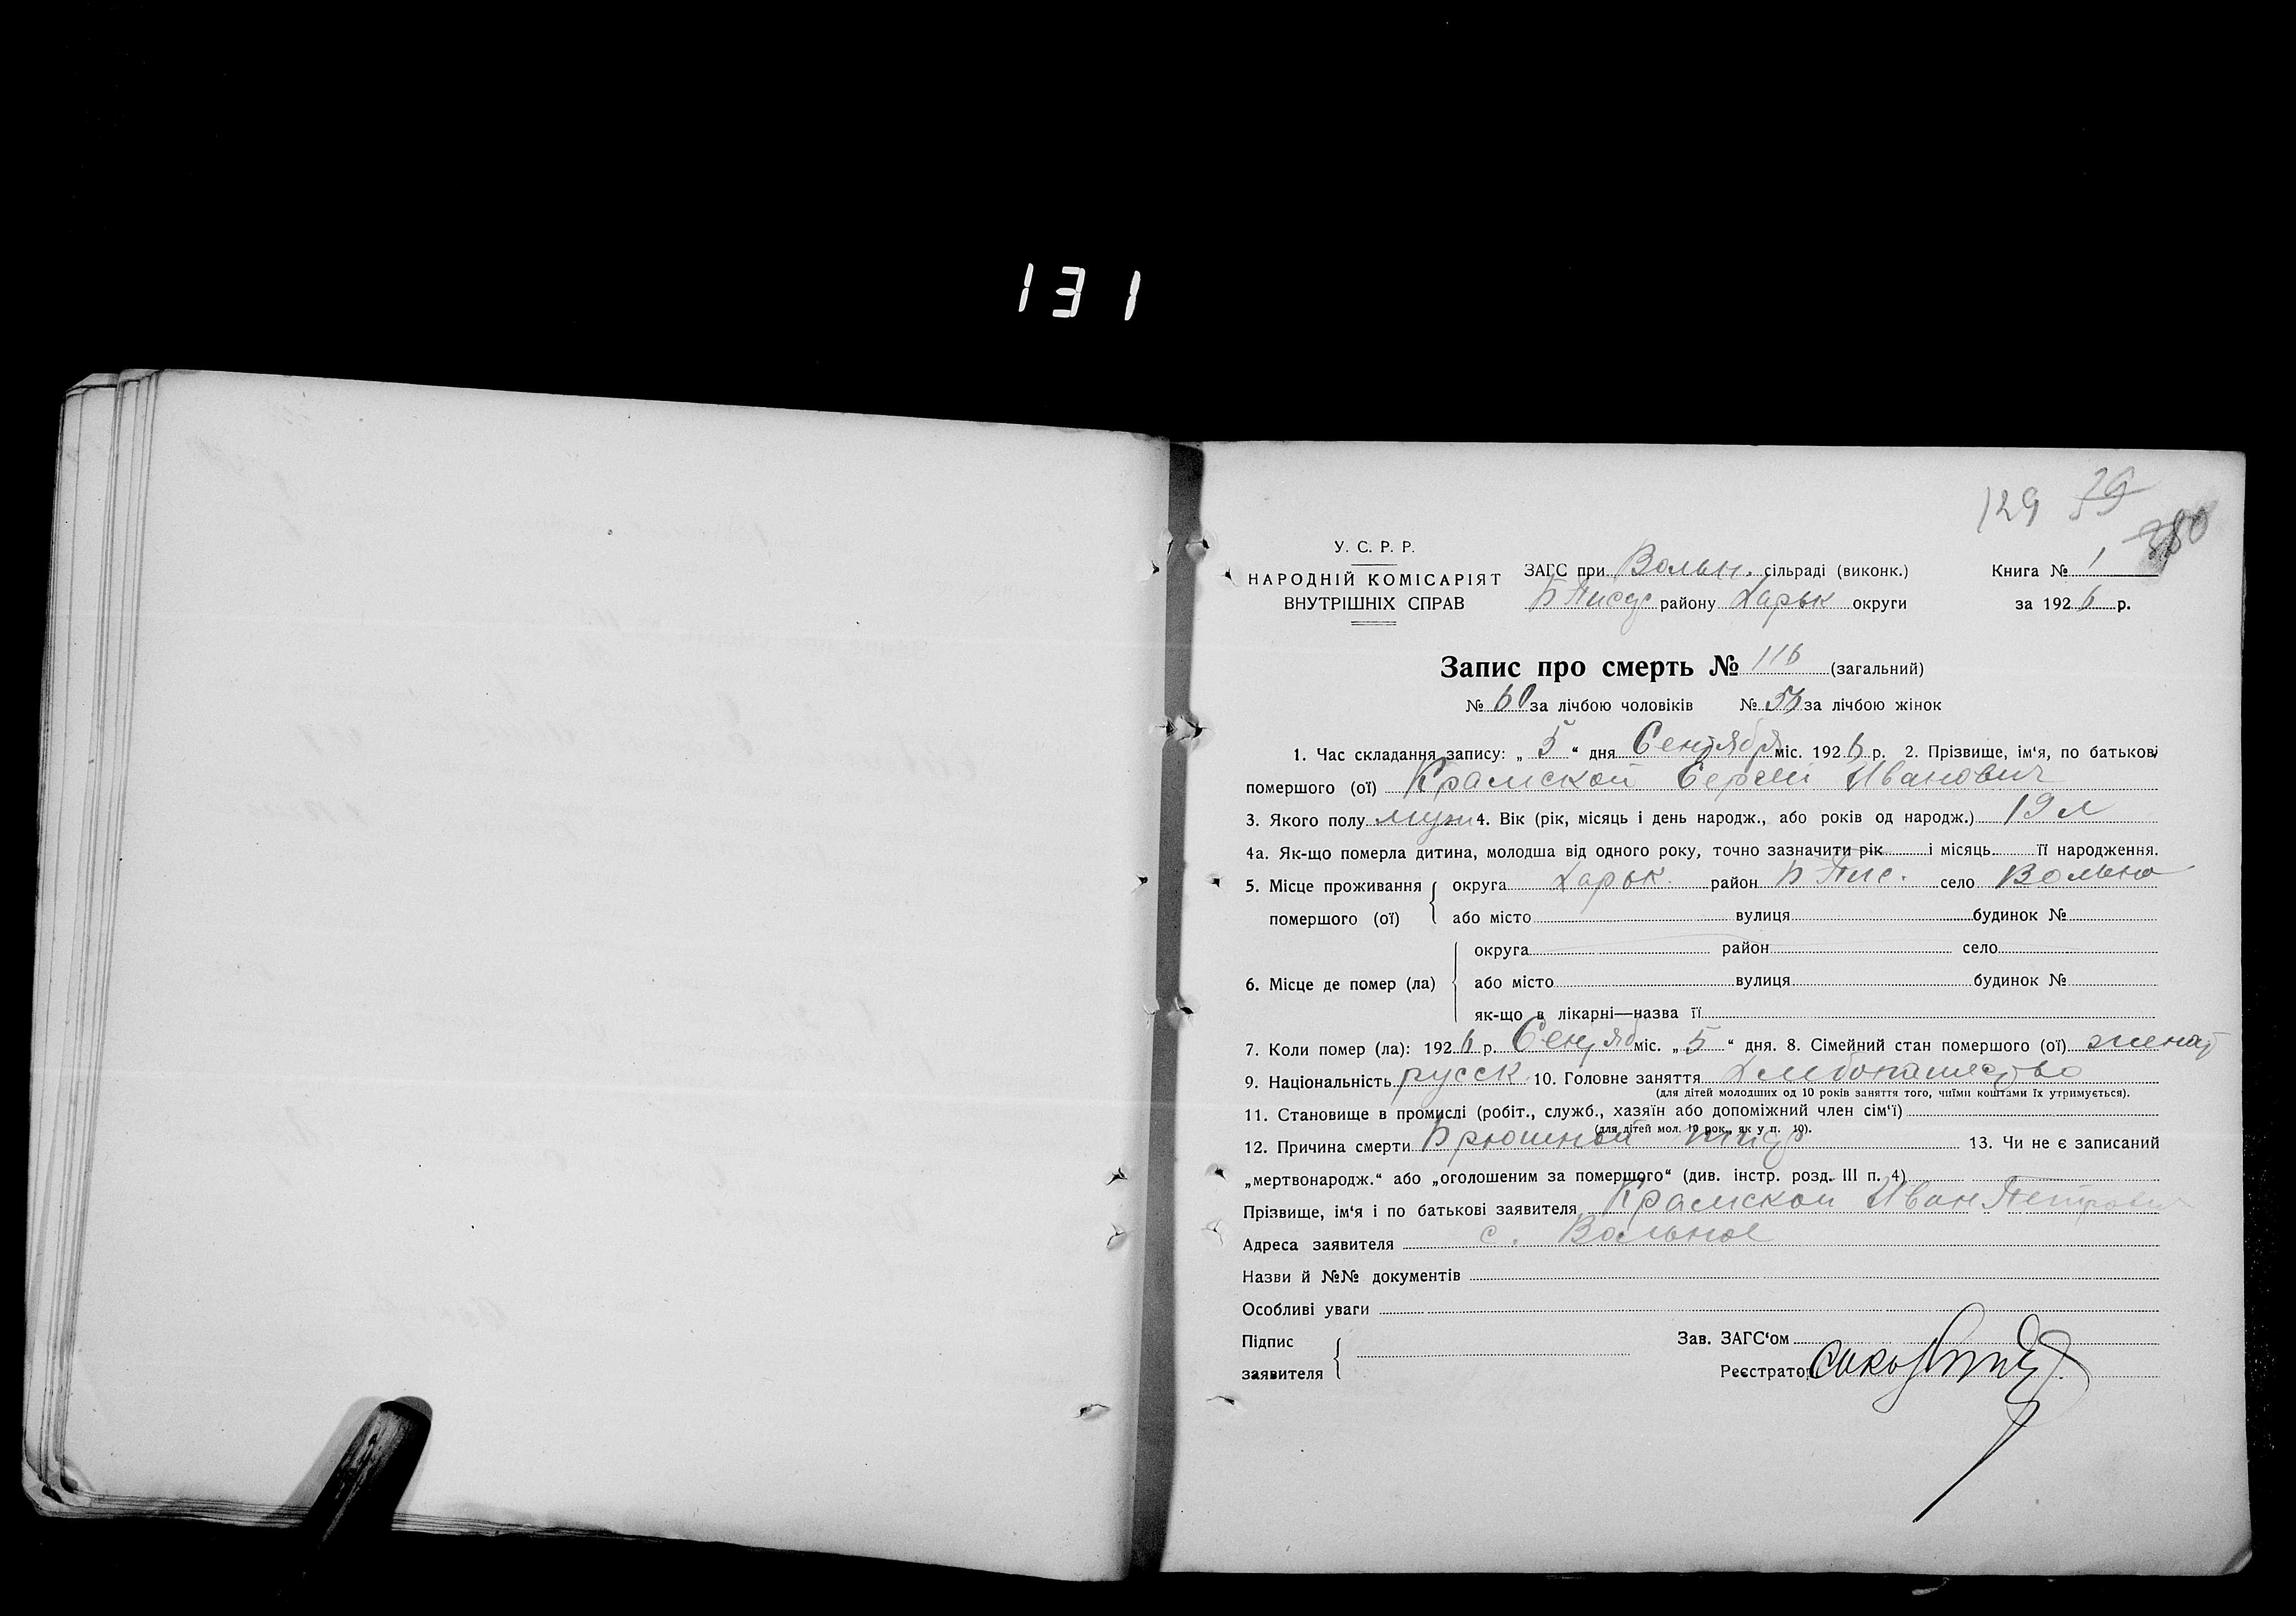 131
129 39
380
У. С. Р. Р.
НАРОДНІЙ КОМІСАРІЯТ
ВНУТРІШНІХ СПРАВ
ЗАГС при Вольн. сільраді (виконк.)
Б Пис район у Харьк округи
Книга № 1
за 1926 р.
Запис про смерть № 116 (загальний)
№ 60 за лічбою чоловіків № 56 за лічбою жінок
1. Час складання запису: „ 5 “ дня Сентября міс. 1926 р. 2. Прізвище, ім‘я, по батькові
помершого (ої) Крамской Сергей Иванович
3. Якого полу муж 4. Вік (рік, місяць і день народж., або років од народж.) 19 л
4а. Як-що померла дитина, молодша від одного року, точно зазначити рік і місяць її народження.
5. Місце проживання помершого (ої) округа Харьк. район Б Пис. село Вольно
або місто вулиця будинок №
6. Місце де помер (ла) округа район село
або місто вулиця будинок №
як-що в лікарні—назва її
7. Коли помер (ла): 1926 р. Сентяб міс. „ 5 “ дня. 8. Сімейний стан помершого (ої) женат
9. Національність русск 10. Головне заняття Хлебопашество
(для дітей молодших од 10 років заняття того, чиїми коштами їх утримується).
11. Становище в промислі (робіт., служб., хазяїн або допоміжний член сім‘ї)
(для дітей мол. 10 рок., як у п. 10).
12. Причина смерти Брюшной тиф 13. Чи не є записаний
„мертвонародж.“ або „оголошеним за помершого“ (див. інстр. розд. III п. 4)
Прізвище, ім‘я і по батькові заявителя Крамской Иван Петрович
Адреса заявителя с. Вольное
Назви й №№ документів
Особливі уваги
Підпис
заявителя
Зав. ЗАГС‘ом
Реєстратор